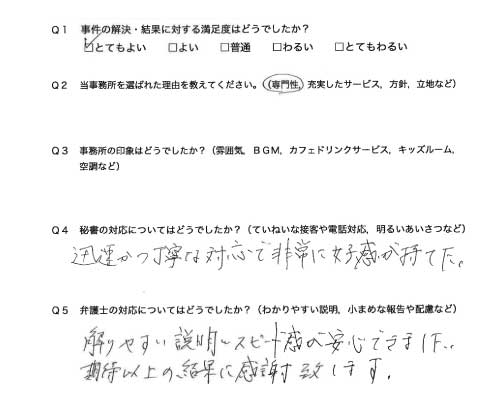 Q1 事件の解決・結果に対する満足度はどうでしたか?
☑とてもよい □よい □普通 □わるい □とてもわるい
Q2 当事務所を選ばれた理由を教えてください。(専門性,充実したサービス,方針,立地など)
Q3 事務所の印象はどうでしたか?(雰囲気,BGM,カフェドリンクサービス,キッズルーム,
空調など)
Q4 秘書の対応についてはどうでしたか?(ていねいな接客や電話対応,明るいあいさつなど)
迅速かつ丁寧な対応で非常に好感が持てた。
Q5 弁護士の対応についてはどうでしたか?(わかりやすい説明,小まめな報告や配慮など)
解りやすい説明とスピード感が安心できました。
期待以上の結果に感謝致します。